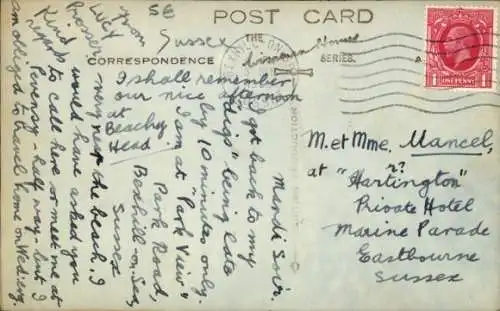 POST CARD
THE
SERIES.
CORRESPONDENCE
BEXHILL-ON-
ONE PENNY
Mardi Soir.
I got back to my
"digs" being late
by 10 minutes only.
I am at "Park View"
Park Road,
Bexhill-on-Sea,
Sussex
very near the beach. I
would have asked you
to call here or meet me at
Pevensy - half way - but I
am obliged to travel home on Wed
Kind
regards
from
Lucy
Prosser
S E
Sussex
I shall remember
our nice afternoon
at
Beachy
Head.
M. et Mme. Mancel,
at "Hartington"
Private Hotel
Marine Parade
Eastbourne
Sussex